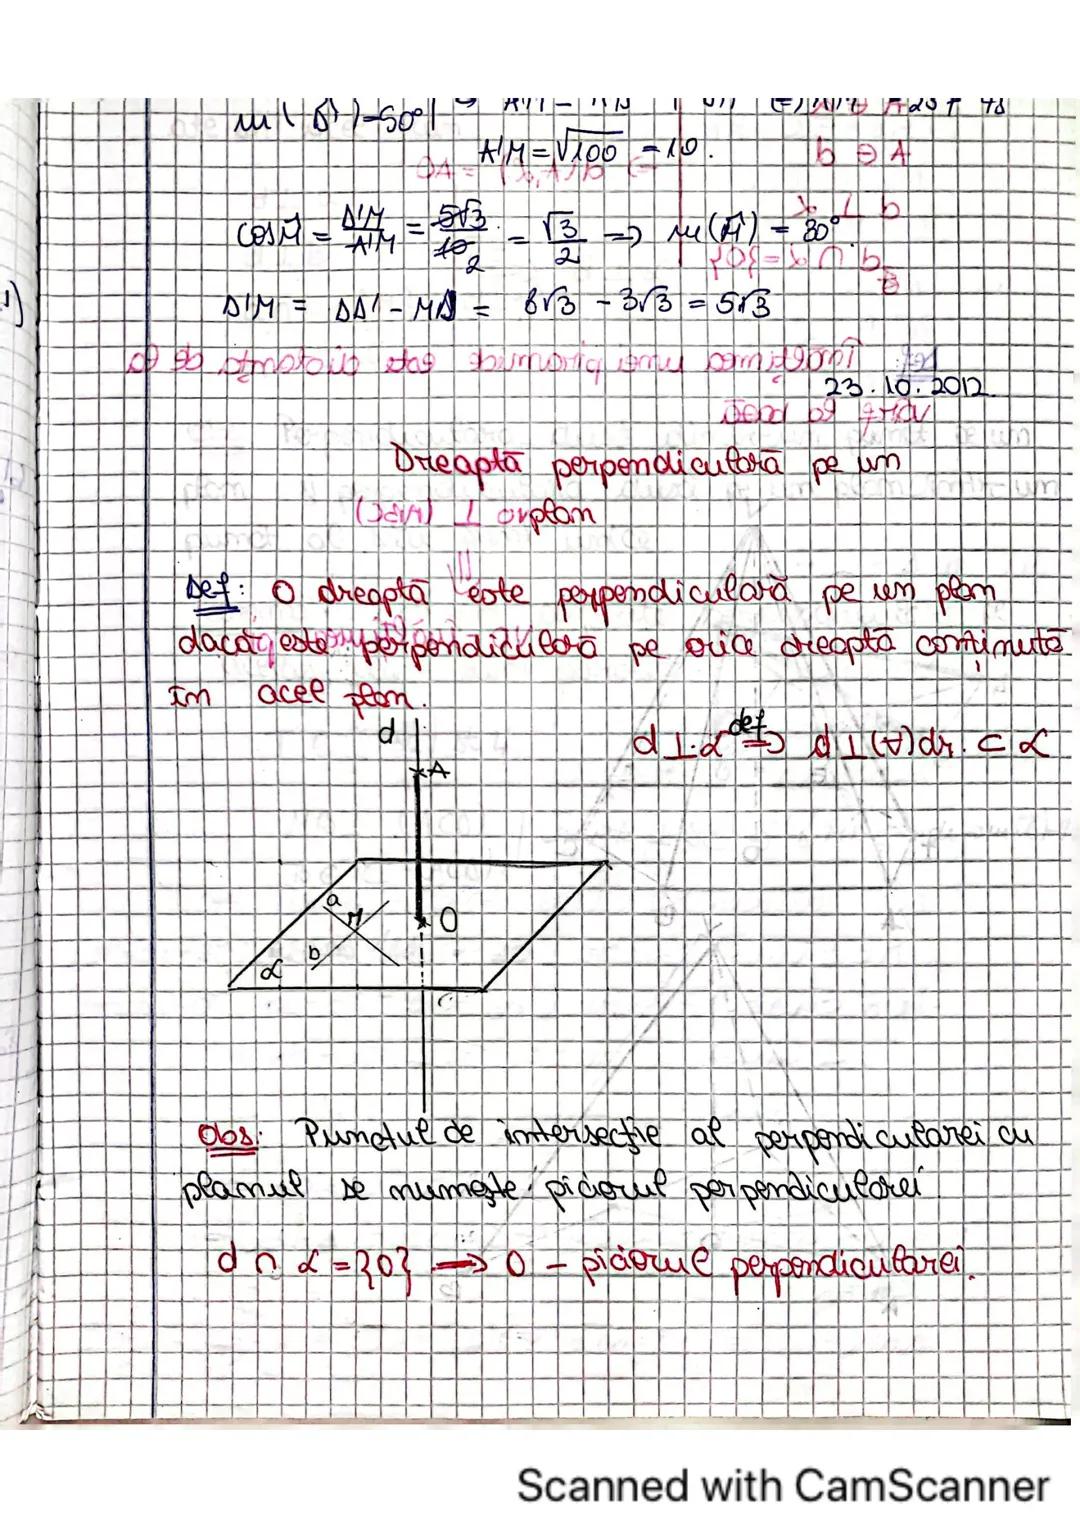 A'M = √100 = 10.
cos M̂ = D'M/A'M = 5√3/10 2 = √3/2 => m(M̂) = 30°
D'M = DD' - MD = 8√3 - 3√3 = 5√3
23.10.2012
Dreaptă perpendiculară pe un
plan
Def: O dreaptă este perpendiculară pe un plan
dacă este perpendiculară pe orice dreaptă conținută
în acel plan.
d ⊥ α def => d ⊥ (∀) dr. ⊂ α
d
A
a
M
O
b
α
Obs: Punctul de intersecție al perpendicularei cu
planul se numește piciorul perpendicularei
d ∩ α = {O} → O - piciorul perpendicularei.
Scanned with CamScanner